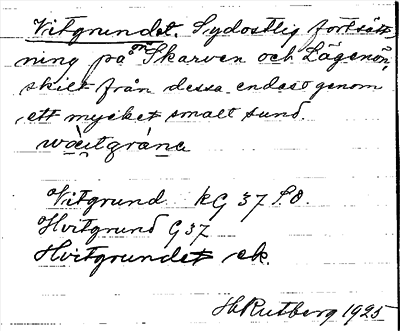 Vitgrundet. Sydostlig fortsätt-
ning på ön Skarven och Lågenön,
skilt från dessa endast genom
ett mycket smalt sund.
Vitgrund KG 37 S.O.
Hvitgrund G 37
Hvitgrundet ek.
H Rutberg 1925